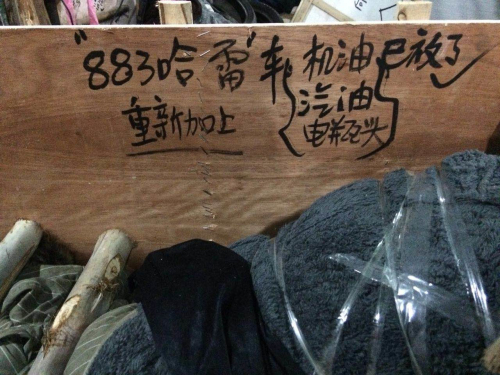 "883哈雷"车 机油 已放了
汽油
重新加上
电瓶头